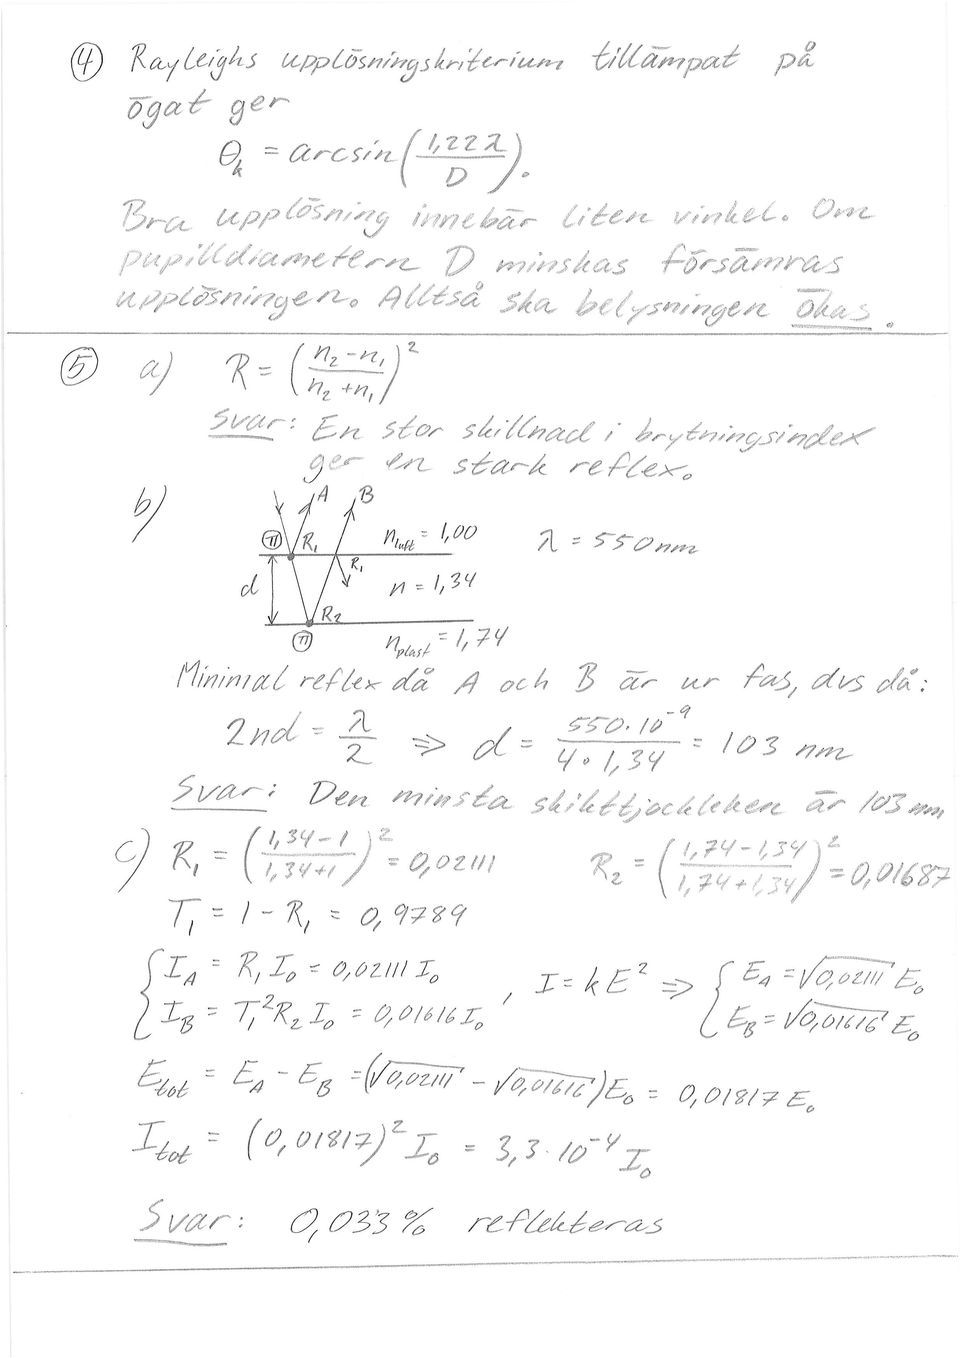 ④ Rayleighs upplösningskriterium tillämpat på
ögat ger
θₖ = arcsin(1,22λ/D).
Bra upplösning innebär liten vinkel. Om
pupilldiametern D minskas försämras
upplösningen. Alltså ska belysningen ökas.
⑤ a) R = ((n₂-n₁)/(n₂+n₁))²
Svar: En stor skillnad i brytningsindex
ger en stark reflex.
b)
A B
π R₁ n_luft = 1,00 λ = 550nm
R₁
d n = 1,34
R₂
π n_plast = 1,74
Minimal reflex då A och B är ur fas, dvs då:
2nd = λ/2 ⇒ d = 550·10⁻⁹/(4·1,34) = 103 nm
Svar: Den minsta skikttjockleken är 103 nm
c) R₁ = ((1,34-1)/(1,34+1))² = 0,02111 R₂ = ((1,74-1,34)/(1,74+1,34))² = 0,01687
T₁ = 1 - R₁ = 0,9789
{ I_A = R₁I₀ = 0,02111 I₀ , I = kE² ⇒ { E_A = √0,02111 E₀
I_B = T₁²R₂I₀ = 0,01616 I₀ E_B = √0,01616 E₀
E_tot = E_A - E_B = (√0,02111 - √0,01616)E₀ = 0,01817 E₀
I_tot = (0,01817)² I₀ = 3,3·10⁻⁴ I₀
Svar: 0,033 % reflekteras